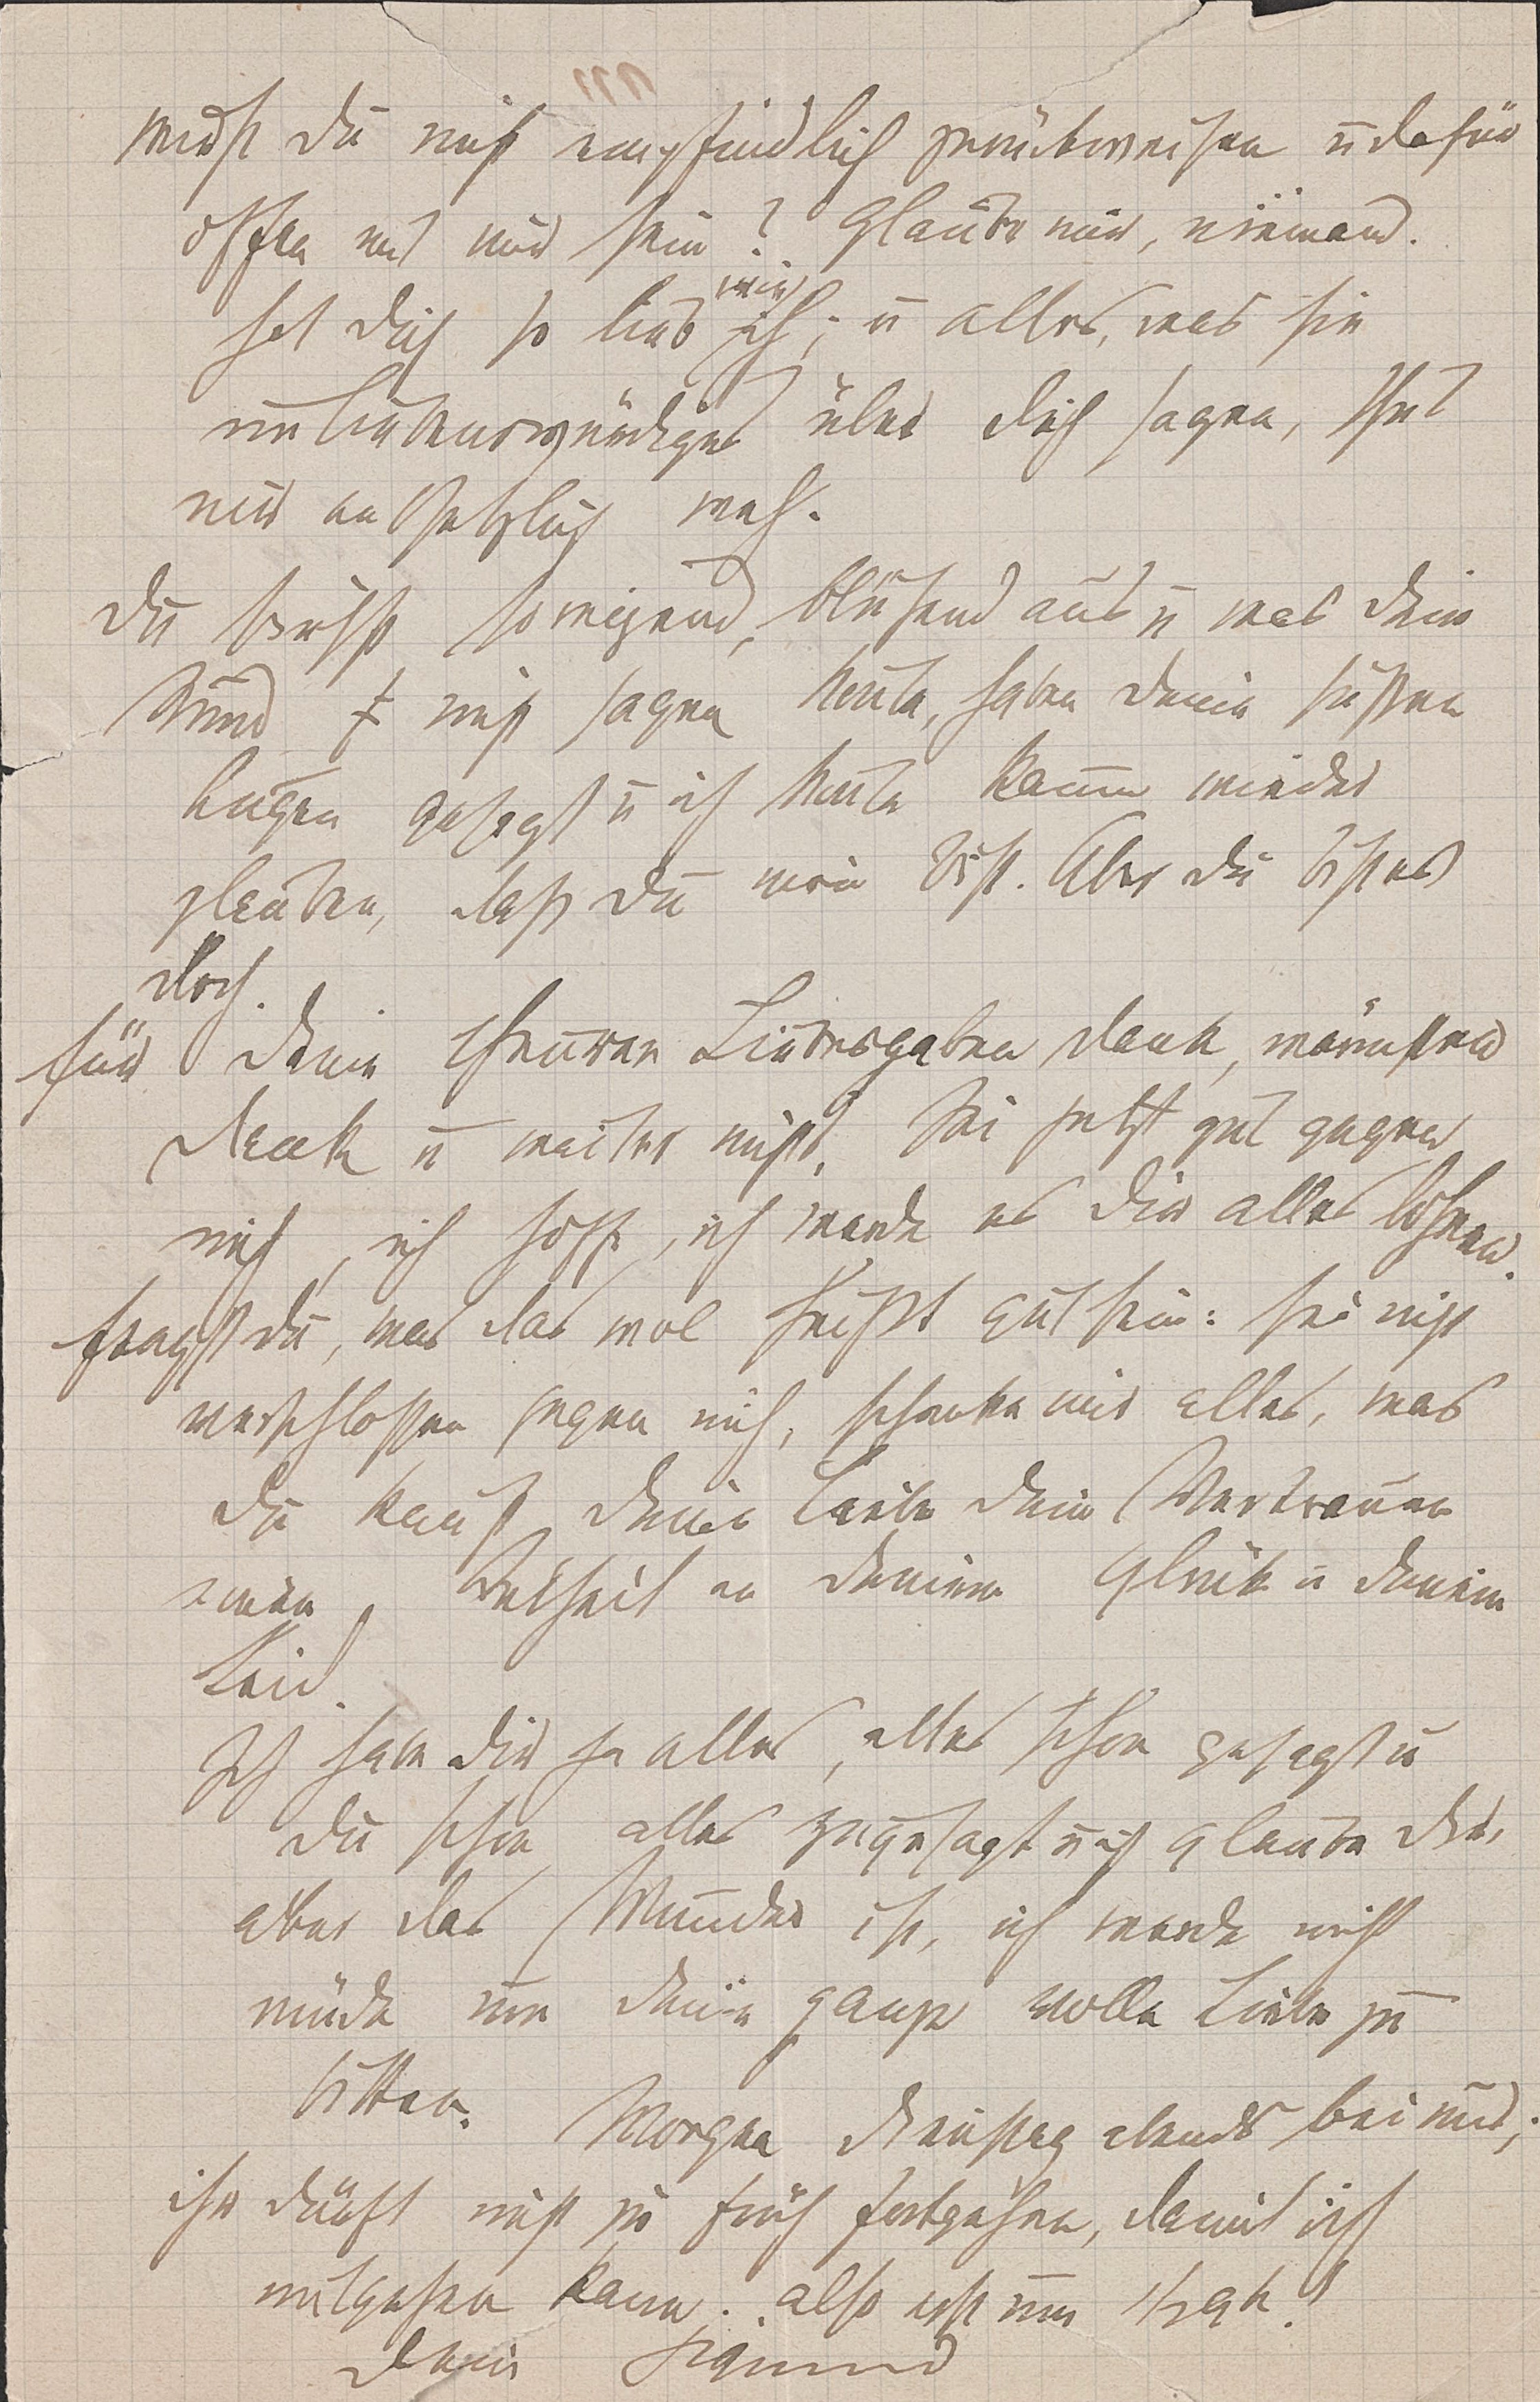 wirst Du nicht empfindlich zurückweisen u dafür
offen mit mir sein? Glaube mir, niemand
hat Dich so lieb wie ich; u alles, was sie
unliebenswürdiges über Dich sagen, thut
mir entsetzlich weh.
Du siehst so reizend, blühend aus u was Dein
Mund nicht sagen konnte, haben Deine süßen
Augen gesagt u ich konnte kaum wieder
glauben, daß Du mein bist. Aber Du bist es
doch.
Für Deine theueren Liebesgaben Dank, wärmsten
Dank u weiter nichts. Sei jetzt gut gegen
mich, ich hoffe, ich werde es Dir alles lohnen.
Fragst Du, was das wol heißt gut sein: sei nicht
verschlossen gegen mich, schenke mir alles, was
Du kannst Deine Liebe Dein Vertrauen
einen Antheil an Deinem Glück u Deinem
Leid.
Ich habe Dir ja alles, alles schon gesagt u
Du schon alles zugesagt u ich glaube Dir,
aber das Wunder ist, ich werde nicht
müde um Deine ganze volle Liebe zu
bitten. Morgen Dienstag abends bei mir;
ihr dürft nicht zu früh fortgehen, damit ich
mitgehen kann. also erst um ½9h!
Dein Sigmund